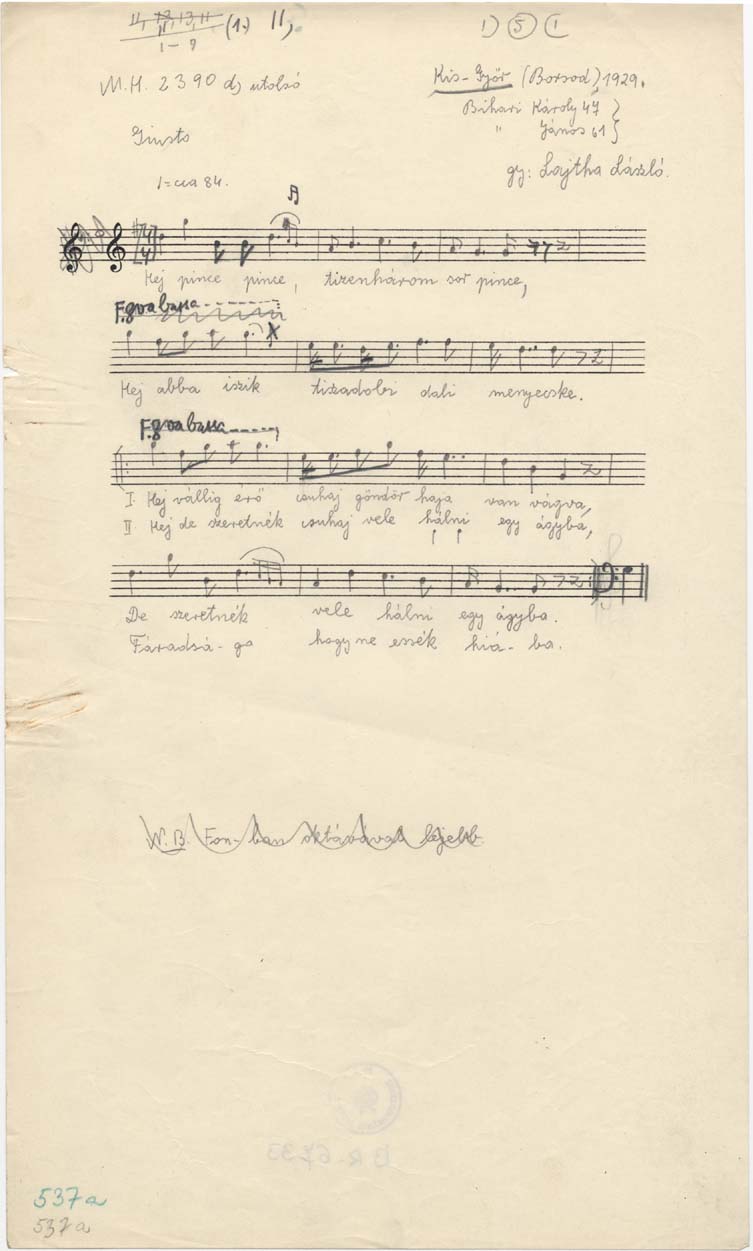 11, 13, 13, 11
11, 11 (1.) 11,
1–9
1) 5 (1
M.H. 2390 d) utolsó
Kis-Győr (Borsod), 1929.
Bihari Károly 47
" János 61
Giusto
gy: Lajtha László.
= cca 84.
Hej pince pince, tizenhárom sor pince,
F. 8va bassa
Hej abba iszik tiszadobi dali menyecske.
F. 8va bassa
I Hej vállig érő csuhaj göndör haja van vágva,
II Hej de szeretnék csuhaj vele hálni egy ágyba,
De szeretnék vele hálni egy ágyba.
Fáradsá-ga hogy ne essék hiá-ba.
N.B. Fon-ban oktávával lejebb.
BR 6733
537a
537a